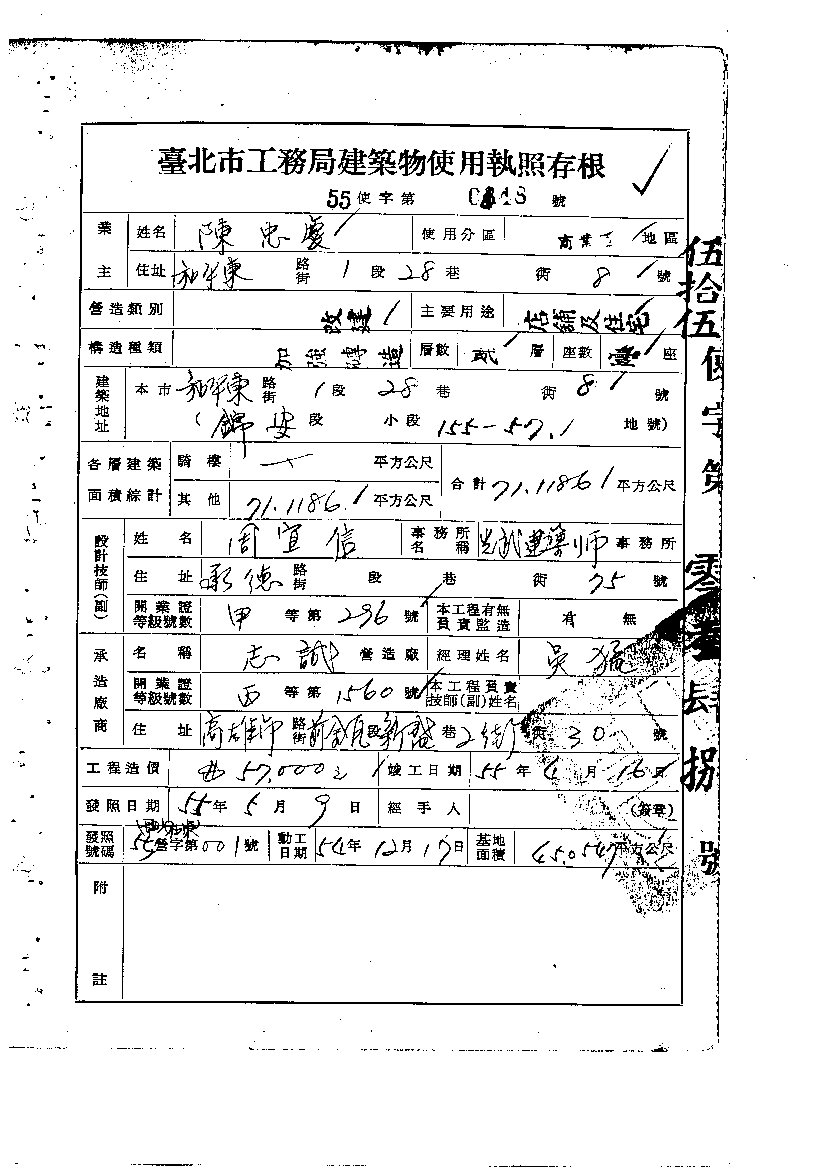 臺北市工務局建築物使用執照存根
55使字第 0348 號
業主 姓名 陳忠慶 使用分區 商業 地區
住址 和平東 路街 1 段 28 巷 街 8 號
營造類別 改建 主要用途 店舖及住宅
構造種類 加強磚造 層數 貳 層 座數 座
建築地址 本市 和平東 路街 1 段 28 巷 街 8 號
(錦安 段 小段 155-57 地號)
各層建築面積綜計 騎樓 平方公尺 合計 71.1186 平方公尺
其他 71.1186 平方公尺
設計技師(副) 姓名 周宜信 事務所名稱 建築師 事務所
住址 承德 路街 段 巷 街 75 號
開業證等級號數 甲 等第 296 號 本工程有無負責監造 有 無
承造廠商 名稱 志誠 營造廠 經理姓名 吳猛
開業證等級號數 丙 等第 1560 號 本工程負責技師(副)姓名
住址 高雄市 路街 前金區 段 新盛 巷 2街 街 30 號
工程造價 57,000 竣工日期 55 年 4 月 16 日
發照日期 55 年 5 月 9 日 經手人 (簽章)
發照號碼 55 營字第 001 號 動工日期 54 年 12 月 17 日 基地面積 45.0547 平方公尺
附註
伍拾伍使字第 零叁肆捌 號